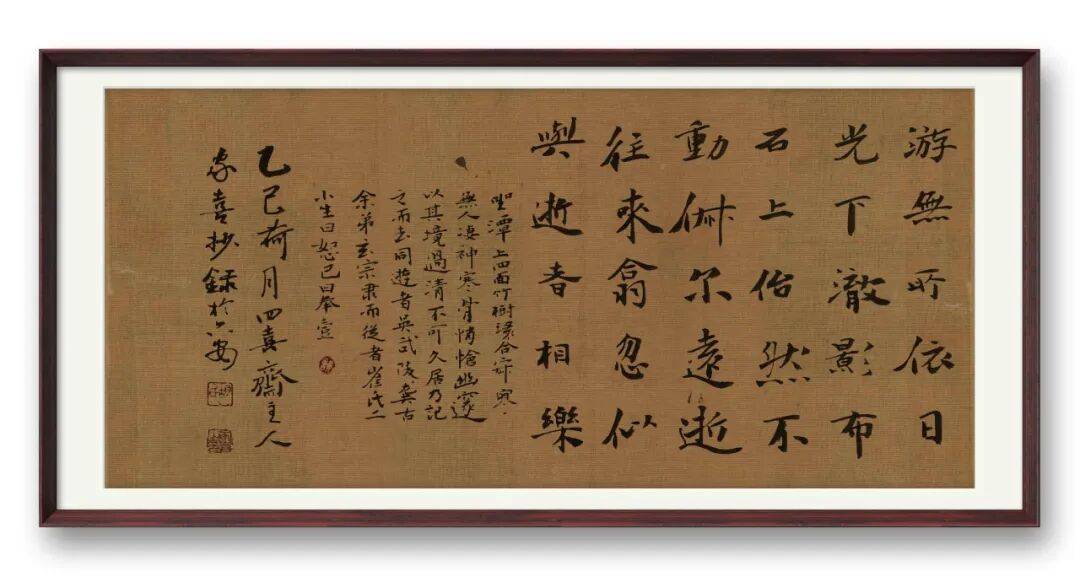 游無所依日
光下澈影布
石上佁然不
動俶尔遠逝
往來翕忽似
與逝者相樂
坐潭上四面竹樹環合寂寥
無人凄神寒骨悄愴幽邃
以其境過清不可久居乃記
之而去同遊者吳武陵龔古
余弟玄宗隶而從者崔氏二
小生曰恕己曰奉壹
乙巳荷月四喜齋主人
家喜抄録於六安